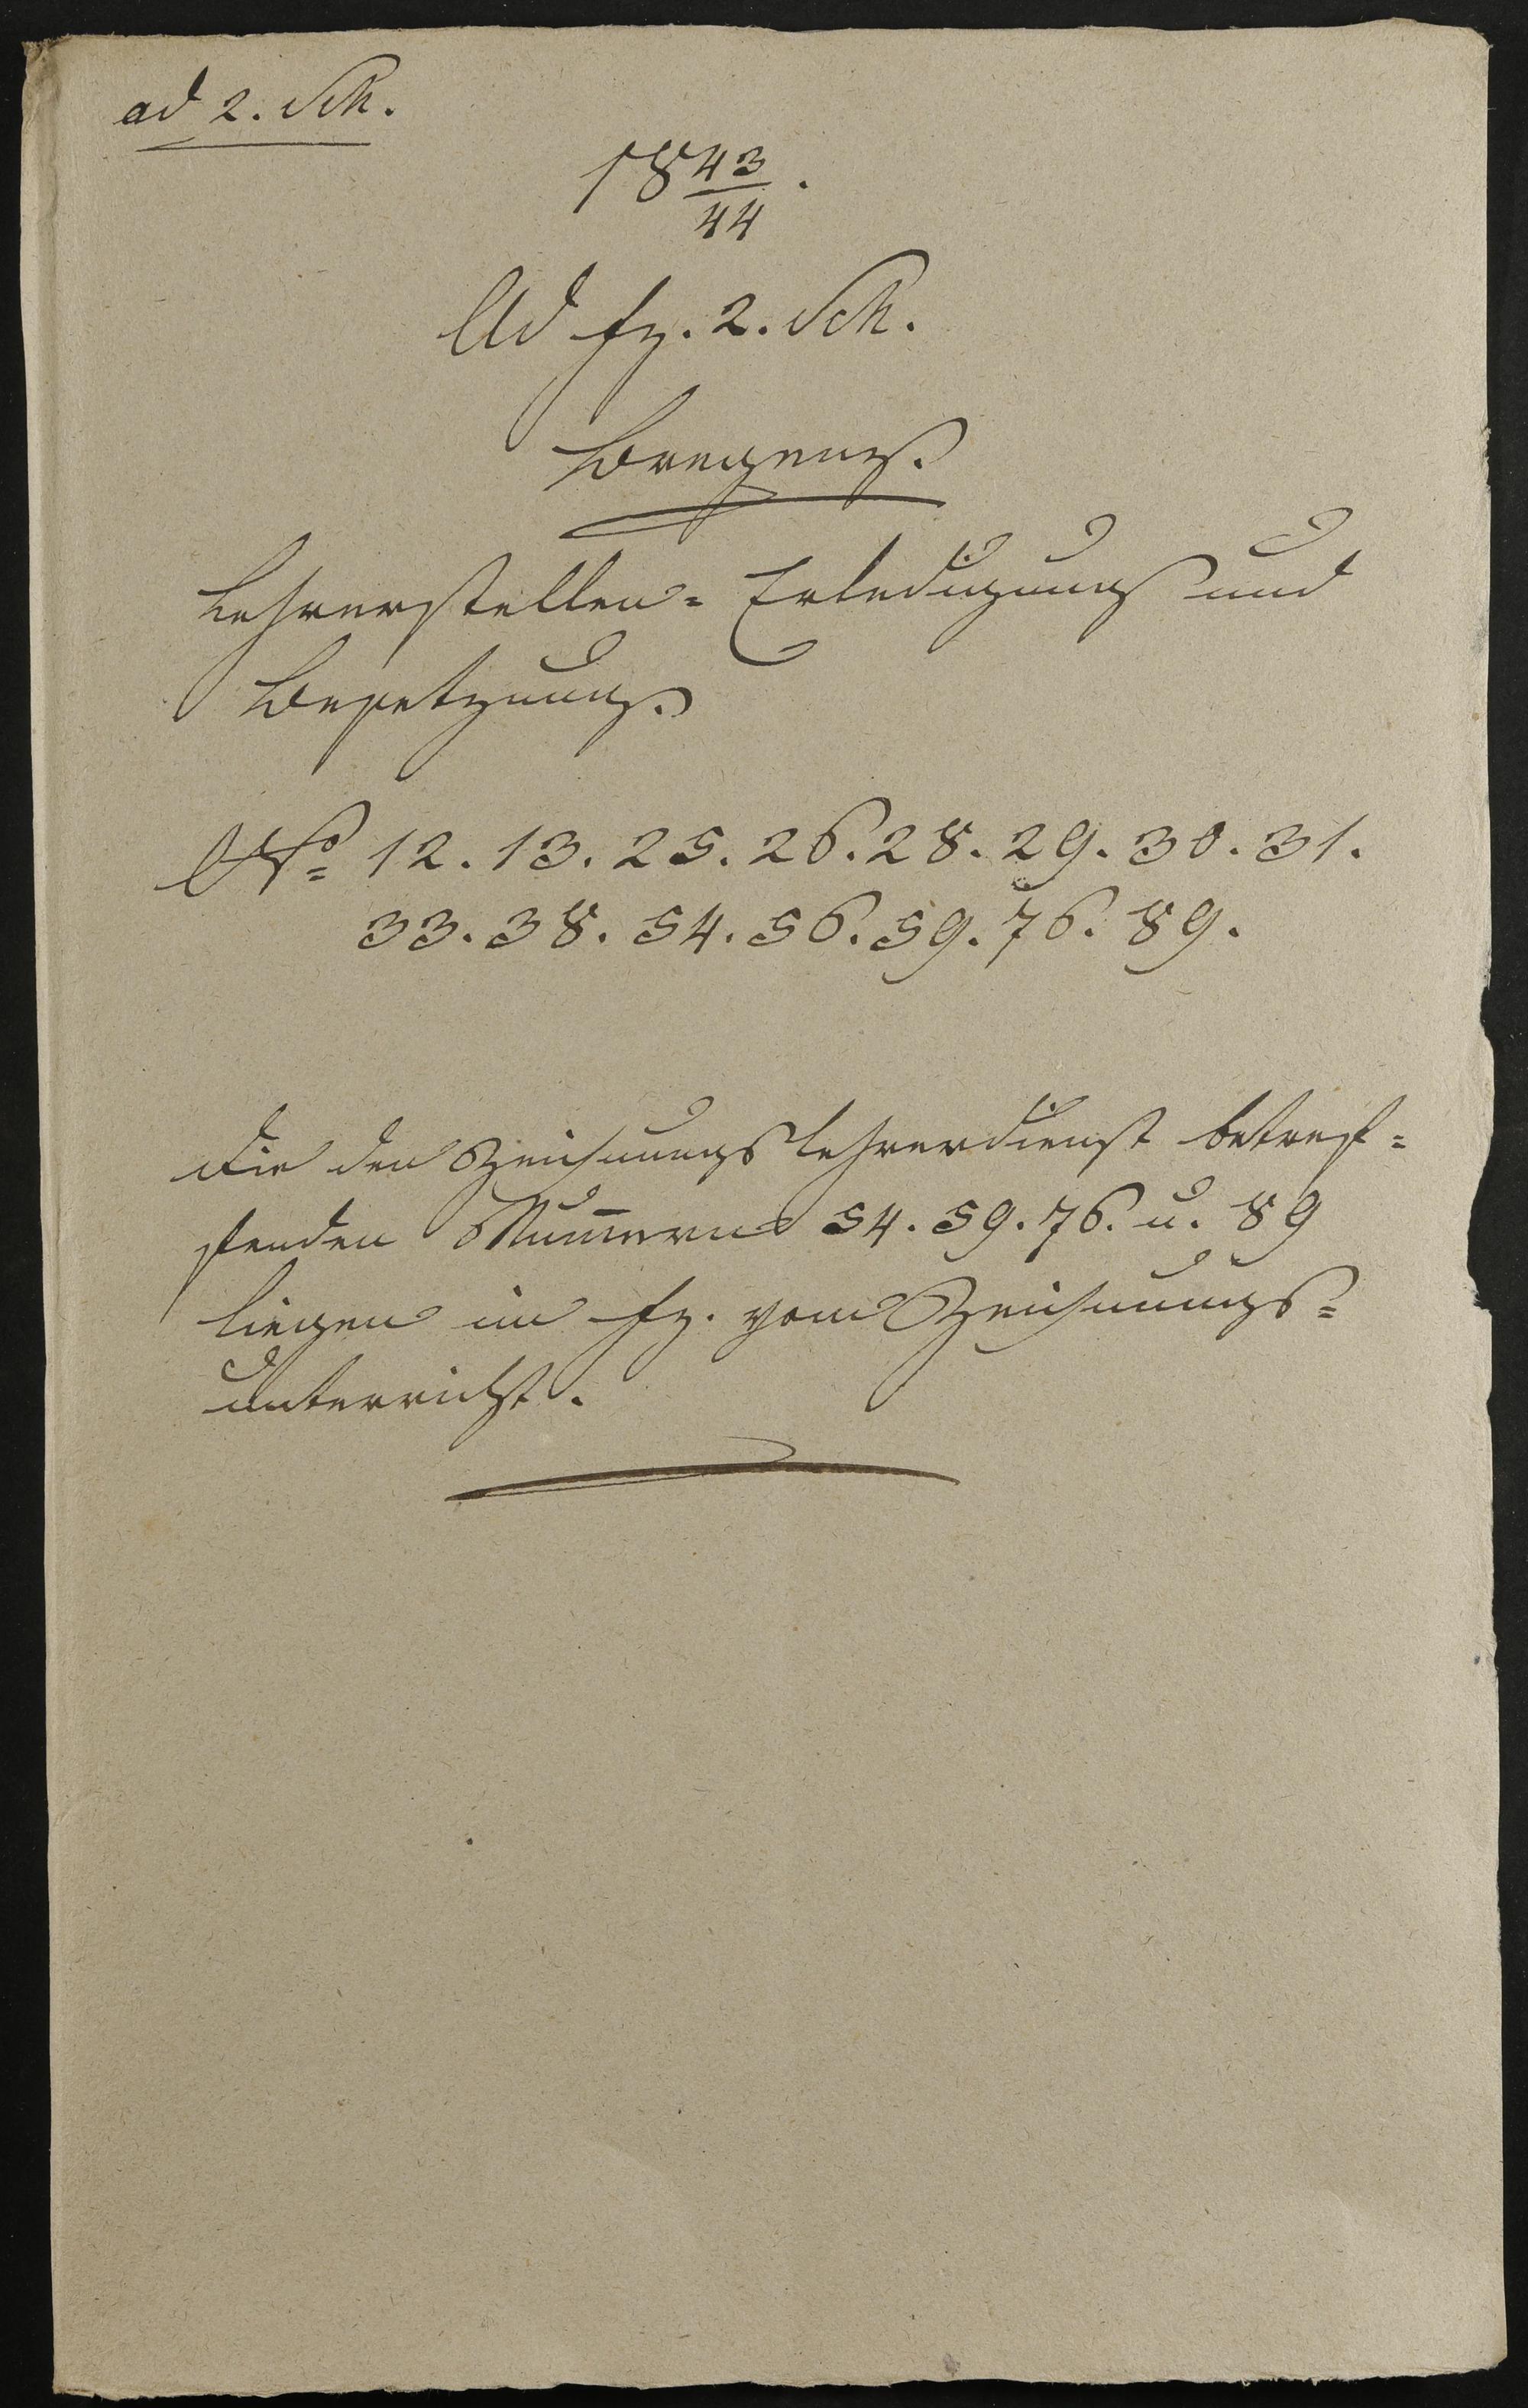 ad 2. Sch.
18 43/44.
Ad fz. 2. Sch.
Bregenz.
Lehrerstellen = Erledigung und
Besetzung.
No 12. 13. 25. 26. 28. 29. 30. 31.
33. 38. 54. 56. 59. 76. 89.
Die den Zeichnungslehrerdienst betref=
fenden Num̅ern 54. 59. 76. u. 89
liegen im fz. vom Zeichnungs=
unterricht.